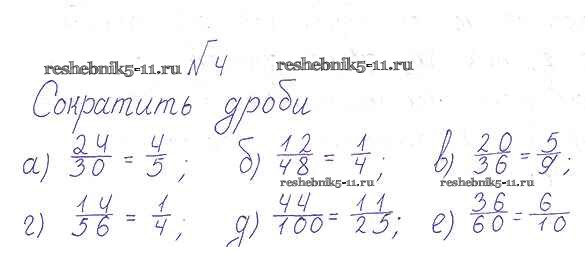 № 4
reshebnik5-11.ru reshebnik5-11.ru
Сократить дроби
а) 24/30 = 4/5; б) 12/48 = 1/4; в) 20/36 = 5/9;
reshebnik5-11.ru reshebnik5-11.ru
г) 14/56 = 1/4; д) 44/100 = 11/25; е) 36/60 = 6/10